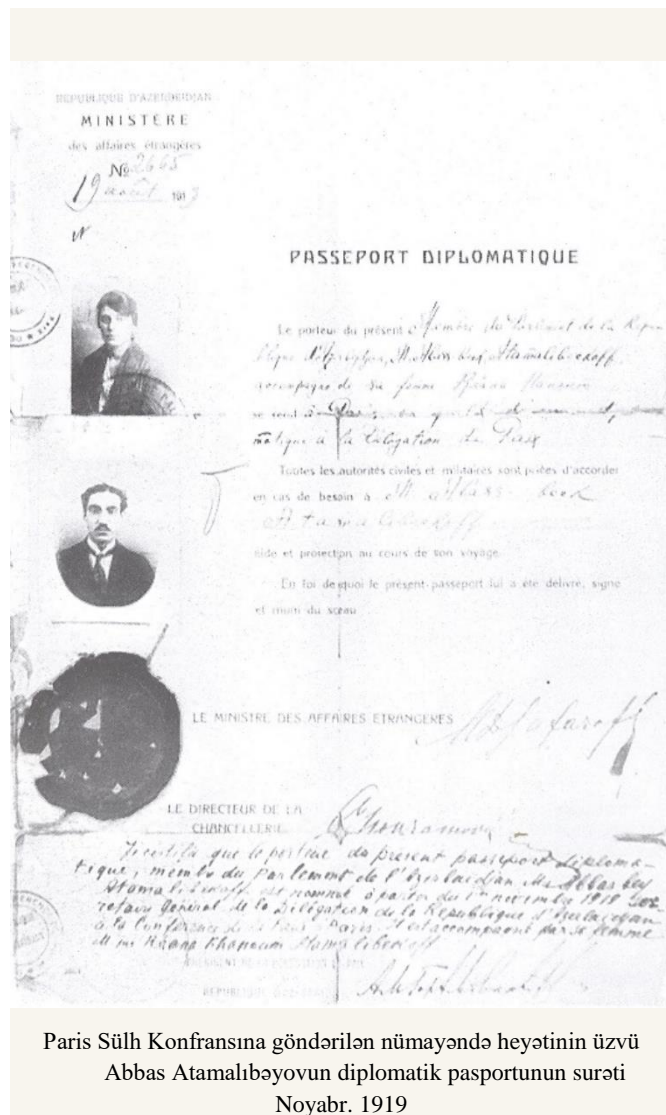 REPUBLIQUE D'AZERBEIDJAN
MINISTERE
des affaires étrangères
№ 2665
19 août 191
PASSEPORT DIPLOMATIQUE
Le porteur du présent Membre du Parlement de la Repu-
blique M. Abbas beck Atamalibeckoff
accompagné de sa femme
se rend à Paris en qualité
matique à la Délégation de Paix
Toutes les autorités civiles et militaires sont priées d'accorder
en cas de besoin à M. Abbas beck
Atamalibeckoff
aide et protection au cours de son voyage.
En foi de quoi le présent passeport lui a été délivré, signé
et muni du sceau
LE MINISTRE DES AFFAIRES ETRANGERES
LE DIRECTEUR DE LA
CHANCELLERIE
que le porteur du présent passeport diploma-
tique, membre du Parlement de l'Azerbaidjan Mr Abbas bey
Atamalibekoff est nommé à partir du 1 novembre 1919 Sec-
rétaire Général de la Délégation de la République d'Azerbaidjan
à la Conférence de Paris. Il est accompagné par sa femme
Khanoum Atamalibekoff
Paris Sülh Konfransına göndərilən nümayəndə heyətinin üzvü
Abbas Atamalıbəyovun diplomatik pasportunun surəti
Noyabr. 1919